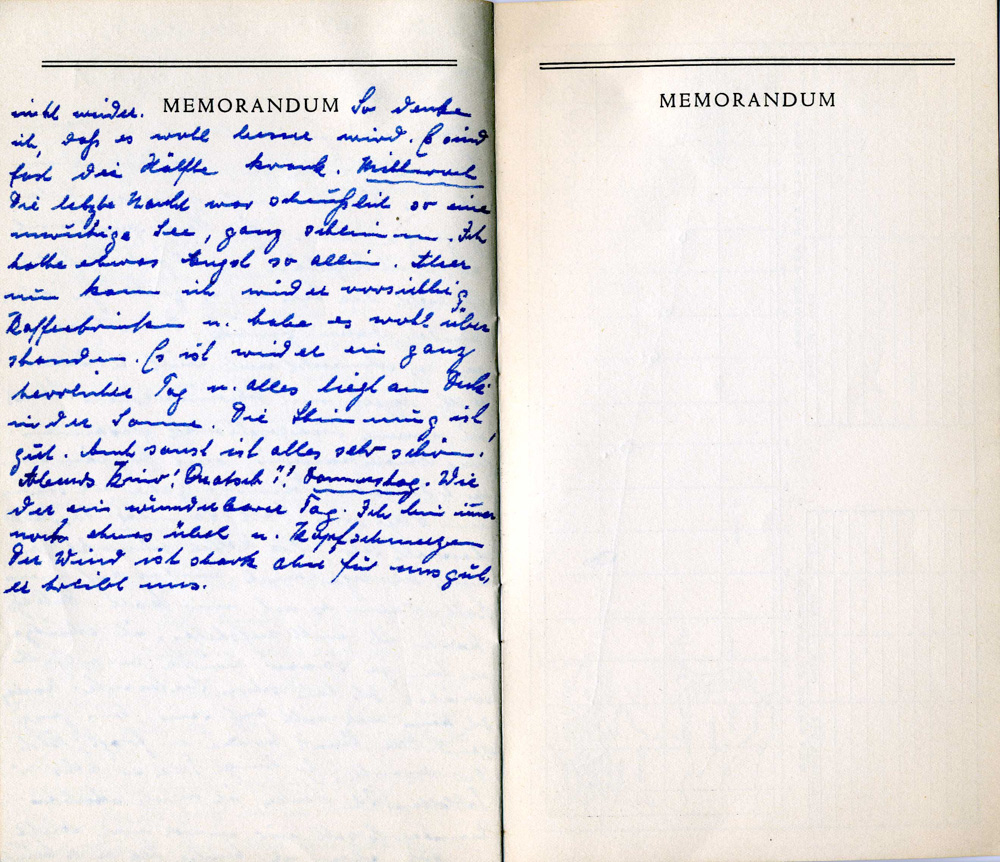 MEMORANDUM
nicht wieder. So denke
ich, daß es wohl besser wird. Es sind
fast die Hälfte krank. Mittwoch
Die letzte Nacht war scheußlich so eine
unruhige See, ganz schlimm. Ich
hatte etwas Angst so allein. Aber
nun kann ich wieder vorsichtig
Kaffeetrinken u. habe es wohl über
standen. Es ist wieder ein ganz
herrlicher Tag u. alles liegt am Deck
in der Sonne. Die Stimmung ist
gut. Auch sonst ist alles sehr schön.
Abends Kino! Quatsch!! Donnerstag. Wie
der ein wunderbarer Tag. Ich bin immer
noch etwas übel u. Kopfschmerzen
Der Wind ist stark aber für uns gut,
er treibt uns.
MEMORANDUM